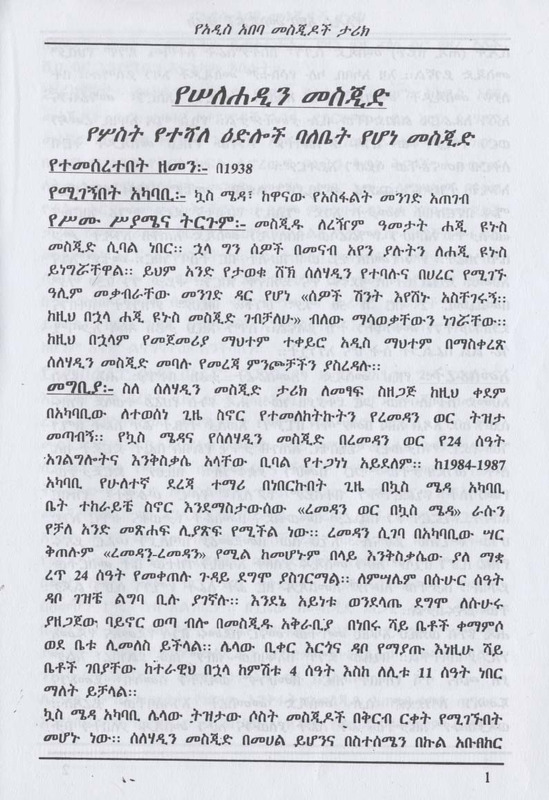 የአዲስ አበባ መስጂዶች ታሪክ
የሠለሐዲን መስጂድ
የሦስት የተሻለ ዕድሎች ባለቤት የሆነ መስጂድ
የተመሰረተበት ዘመን:- በ1938
የሚገኝበት አካባቢ:- ኳስ ሜዳ፣ ከዋናው የአስፋልት መንገድ አጠገብ
የሥሙ ሥያሜና ትርጉም:- መስጂዱ ለረዥም ዓመታት ሐጂ ዩኑስ
መስጂድ ሲባል ነበር፡፡ ኋላ ግን ሰዎች በመናብ እየን ያሉትን ለሐጂ ዩኑስ
ይነግሯቸዋል፡፡ ይህም አንድ የታወቁ ሸኽ ሰለሃዲን የተባሉና በሀረር የሚገኙ
ዓሊም መቃብራቸው መንገድ ዳር የሆነ «ሰዎች ሽንት እየሸኑ አስቸገሩኝ፡፡
ከዚህ በኋላ ሐጂ ዩኑስ መስጂድ ገብቻለሁ» ብለው ማሳወቃቸውን ነገሯቸው፡፡
ከዚህ በኋላም የመጀመሪያ ማህተም ተቀይሮ አዲስ ማህተም በማስቀረጽ
ሰለሃዲን መስጂድ መባሉ የመረጃ ምንጮቻችን ያስረዳሉ፡፡
መግቢያ:- ስለ ሰለሃዲን መስጂድ ታሪክ ለመፃፍ ስዘጋጅ ከዚህ ቀደም
በአካባቢው ለተወሰነ ጊዜ ስኖር የተመለከትኩትን የረመዳን ወር ትዝታ
መጣብኝ፡፡ የኳስ ሜዳና የሰለሃዲን መስጂድ በረመዳን ወር የ24 ሰዓት
አገልግሎትና እንቅስቃሴ አላቸው ቢባል የተጋነነ አይደለም፡፡ ከ1984-1987
አካባቢ የሁለተኛ ደረጃ ተማሪ በነበርኩበት ጊዜ በኳስ ሜዳ አካባቢ
ቤት ተከራይቼ ስኖር እንደማስታውሰው «ረመዳን ወር በኳስ ሜዳ» ራሱን
የቻለ አንድ መጽሐፍ ሊያጽፍ የሚችል ነው፡፡ ረመዳን ሲገባ በአካባቢው ሣር
ቅጠሉም «ረመዳን-ረመዳን» የሚል ከመሆኑም በላይ እንቅስቃሴው ያለ ማቋ
ረጥ 24 ሰዓት የመቀጠሉ ጉዳይ ደግሞ ያስገርማል፡፡ ለምሣሌም በሱሁር ሰዓት
ዳቦ ገዝቼ ልግባ ቢሉ ያገኛሉ፡፡ እንደኔ አይነቱ ወንደላጤ ደግሞ ለሱሁሩ
ያዘጋጀው ባይኖር ወጣ ብሎ በመስጂዱ አቅራቢያ በነበሩ ሻይ ቤቶች ቀማምሶ
ወደ ቤቱ ሊመለስ ይችላል፡፡ ሌላው ቢቀር እርጎና ዳቦ የማያጡ እነዚሁ ሻይ
ቤቶች ገበያቸው ከተራዊህ በኋላ ከምሽቱ 4 ሰዓት እስከ ለሊቱ 11 ሰዓት ነበር
ማለት ይቻላል፡፡
ኳስ ሜዳ አካባቢ ሌላው ትዝታው ሶስት መስጂዶች በቅርብ ርቀት የሚገኙበት
መሆኑ ነው፡፡ ሰለሃዲን መስጂድ በመሀል ይሆንና በስተሰሜን በኩል አቡበከር
1